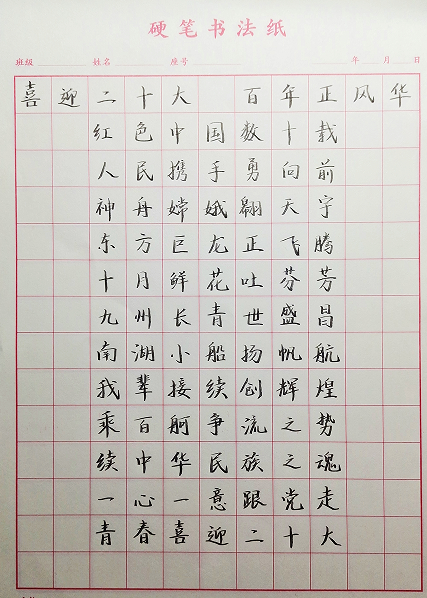 硬笔书法纸
班级 姓名 座号 年 月 日
喜迎二十大 百年正风华
红色中国数十载
人民携手勇向前
神舟嫦娥翱天宇
东方巨龙正飞腾
十月鲜花吐芬芳
九州长青世盛昌
南湖小船扬帆航
我辈接续创辉煌
乘百舸争流之势
续中华民族之魂
一心一意跟党走
青春喜迎二十大